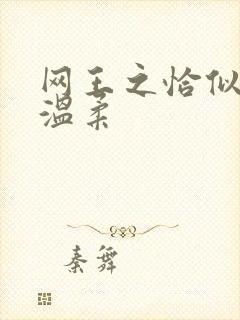 网王之恰似
温柔
秦舞